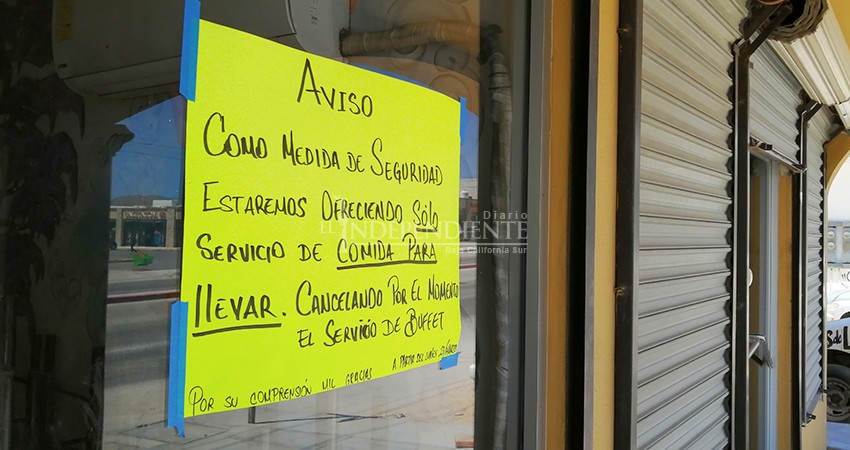 AVISO
COMO MEDIDA DE SEGURIDAD
ESTAREMOS OFRECIENDO SÓLO
SERVICIO DE COMIDA PARA
LLEVAR. CANCELANDO POR EL MOMENTO
EL SERVICIO DE BUFFET
A PARTIR DEL LUNES
POR SU COMPRENSIÓN MIL GRACIAS
Diario
EL INDEPENDIENTE
Baja California Sur